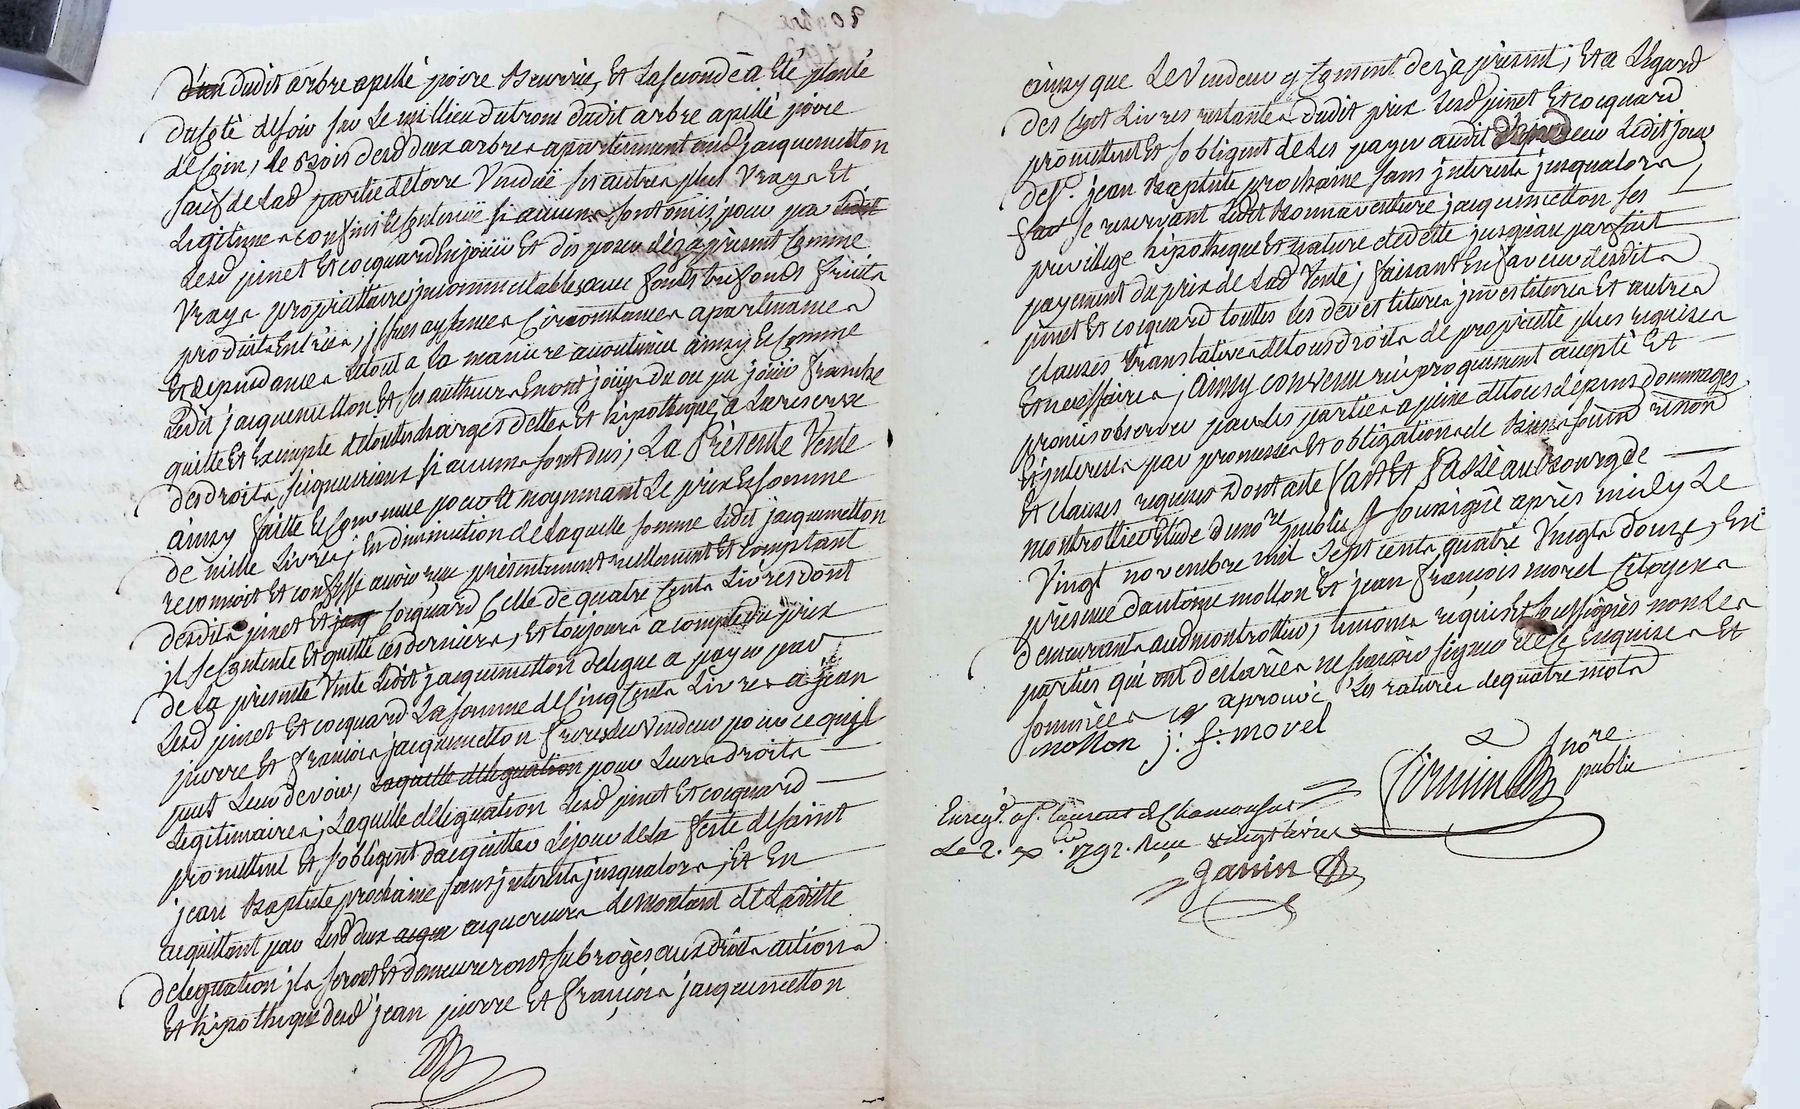 dudit arbre apellé poire beurrée, Et La seconde a Eté planté
du Coté de soir sur Le millieu dutronc dudit arbre apellé poire
de Coin, le bois desd deux arbres apartiennent aud jacquemetton
sauf de Lad partie de terre Venduë ses autres plus Vrays et
Legitimes confins Et Contenuë si aucuns sont omis, pour par ledit
Lesd pinet Et cocquard En jouir Et disposer dèsaprésent Comme
Vrays propriettaires jncommutables avec fonds tres fonds fruits
produits Entrées, jssues aysances Circonstances apartenances
Et dépendances Et tout a La manière accoutumée ainsy Et Comme
Ledit jacquemetton Et ses autheurs En ont joüi, du ou pu jouir franche
quitte Et Exempte de toutes charges dettes Et hipotheque, à La reserve
des droits seigneuriaux si aucuns sont dus; La Présente Vente
ainsy faitte Et Convenue pour Et moyennant Le prix Et somme
de mille Livres; En diminution de Laquelle somme Ledit jacquemetton
reconnoit Et confesse avoir reçu présentement reellement Et comptant
desdits pinet Et jacq Cocquard Celle de quatre Cents Livres dont
il se Contente Et quitte ces derniers, Et toujours a compte du prix
de La présente Vente Ledit jacquemetton delegue a payer par
Lesd pinet Et cocquard La somme de Cinq Cents Livres a jean
pierre Et françois jacquemetton freres du Vendeur pour ce qu'il
peut Leur devoir, Laquelle déléguation pour Leurs droits
Legitimaires; Laquelle déléguation Lesd pinet Et cocquard
promettent Et s'obligent d'acquitter Le jour de la feste de saint
jean Baptiste prochaine sans jnterests jusqualors; Et En
acquittant par Lesd deux acque acquereurs Le montant de Laditte
déleguation jls seront Et demeureront subrogés aux droits actions
Et hipotheque desd jean pierre Et françois jacquemetton
ainsy que Le Vendeur y Consent dezà présent; Et a Légard
des Cent Livres restantes dudit prix Lesd pinet Et cocquard
promettent Et s'obligent de Les payer audit Vendeur Ledit jour
de st. jean Baptiste prochaine sans jnterests jusqualors
fait se reservant Ledit Bonnaventure jacquemetton ses
privillege hipotheque Et nature de dette jusqu'au parfait
payement du prix de Lad Vente; faisant En faveur desdits
pinet Et cocquard touttes les devestitures jnvestitures Et autres
clauses translatives de tous droits de propriette plus requises
Et necessaires; Ainsy convenu réciproquement accepté Et
promis observer par Les parties a peine de tous dépens dommages
Et jnterests par promesses Et obligations de Biens soum renon
Et clauses requises Dont acte fait Et Passé au Bourg de
montrottier Etude du nore. publicq soussigné après midy Le
Vingt novembre mil Sept cents quatre Vingts douze, En
présence d'antoine mollon Et jean françois morel Citoyens
demeurants aud montrottier, temoins requis Et soussignés non Les
parties qui ont declarées ne sçavoir signer de Ce Enquises Et
sommées aprouvé Les ratures de quatre mots
mollon j: f: morel
nore
public
Enregt. a st. Laurent de Chamousset
Le 2. xbre. 1792. Reçu vingt livres
Janin